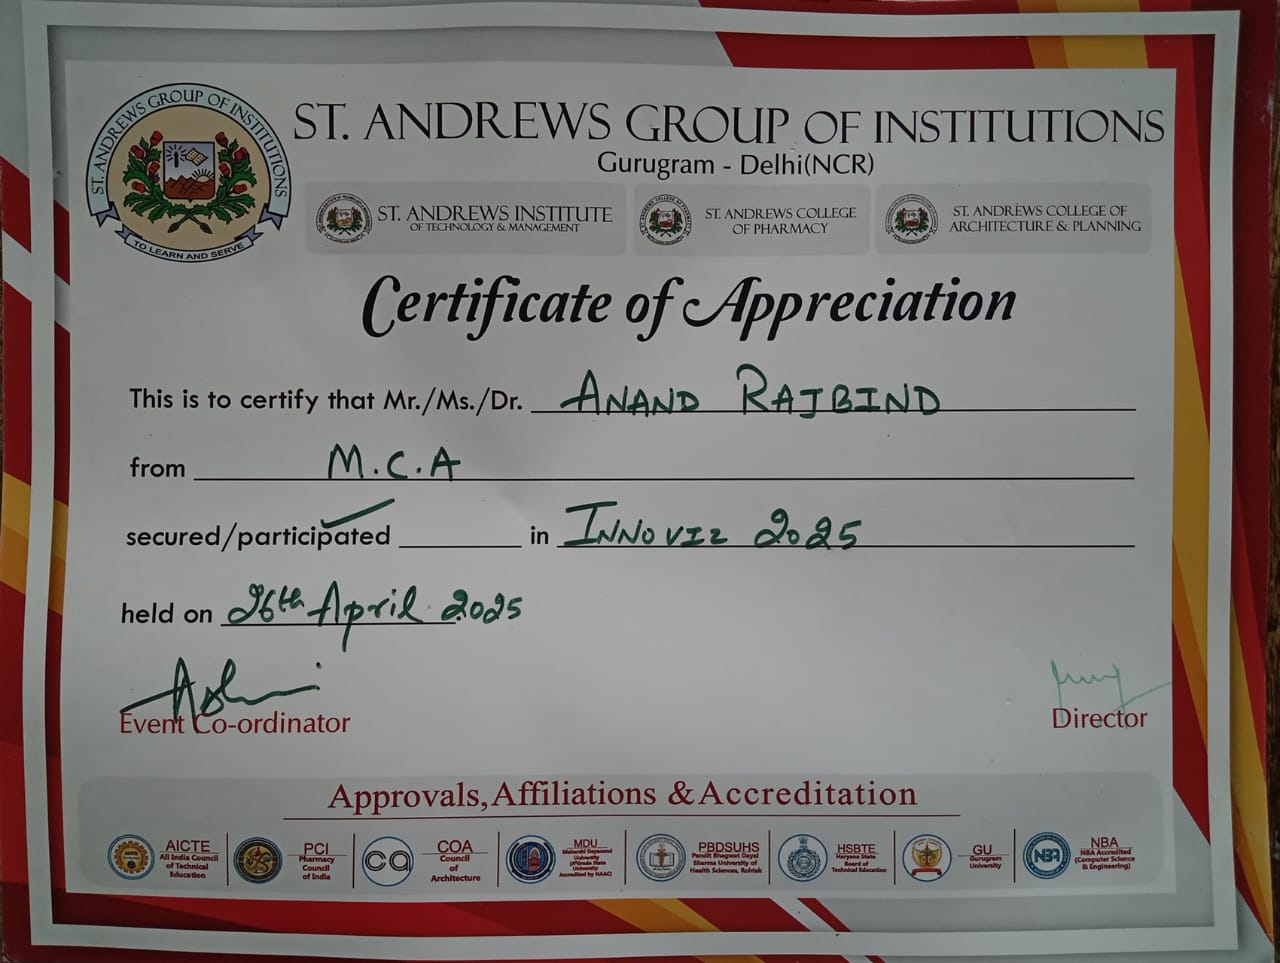 ST. ANDREWS GROUP OF INSTITUTIONS
TO LEARN AND SERVE
ST. ANDREWS GROUP OF INSTITUTIONS
Gurugram - Delhi(NCR)
ST. ANDREWS INSTITUTE
OF TECHNOLOGY & MANAGEMENT
ST. ANDREWS COLLEGE
OF PHARMACY
ST. ANDREWS COLLEGE OF
ARCHITECTURE & PLANNING
Certificate of Appreciation
This is to certify that Mr./Ms./Dr. ANAND RAJBIND
from M.C.A
secured/participated in INNOVIZ 2025
held on 26th April 2025
Event Co-ordinator
Director
Approvals,Affiliations &Accreditation
AICTE
All India Council
of Technical
Education
PCI
Pharmacy
Council
of India
COA
Council
of
Architecture
MDU
Maharshi Dayanand
University
(A+Grade State
University
Accredited by NAAC)
PBDSUHS
Pandit Bhagwat Dayal
Sharma University of
Health Sciences, Rohtak
HSBTE
Haryana State
Board of
Technical Education
GU
Gurugram
University
NBA
NBA
NBA Accredited
(Computer Science
& Engineering)